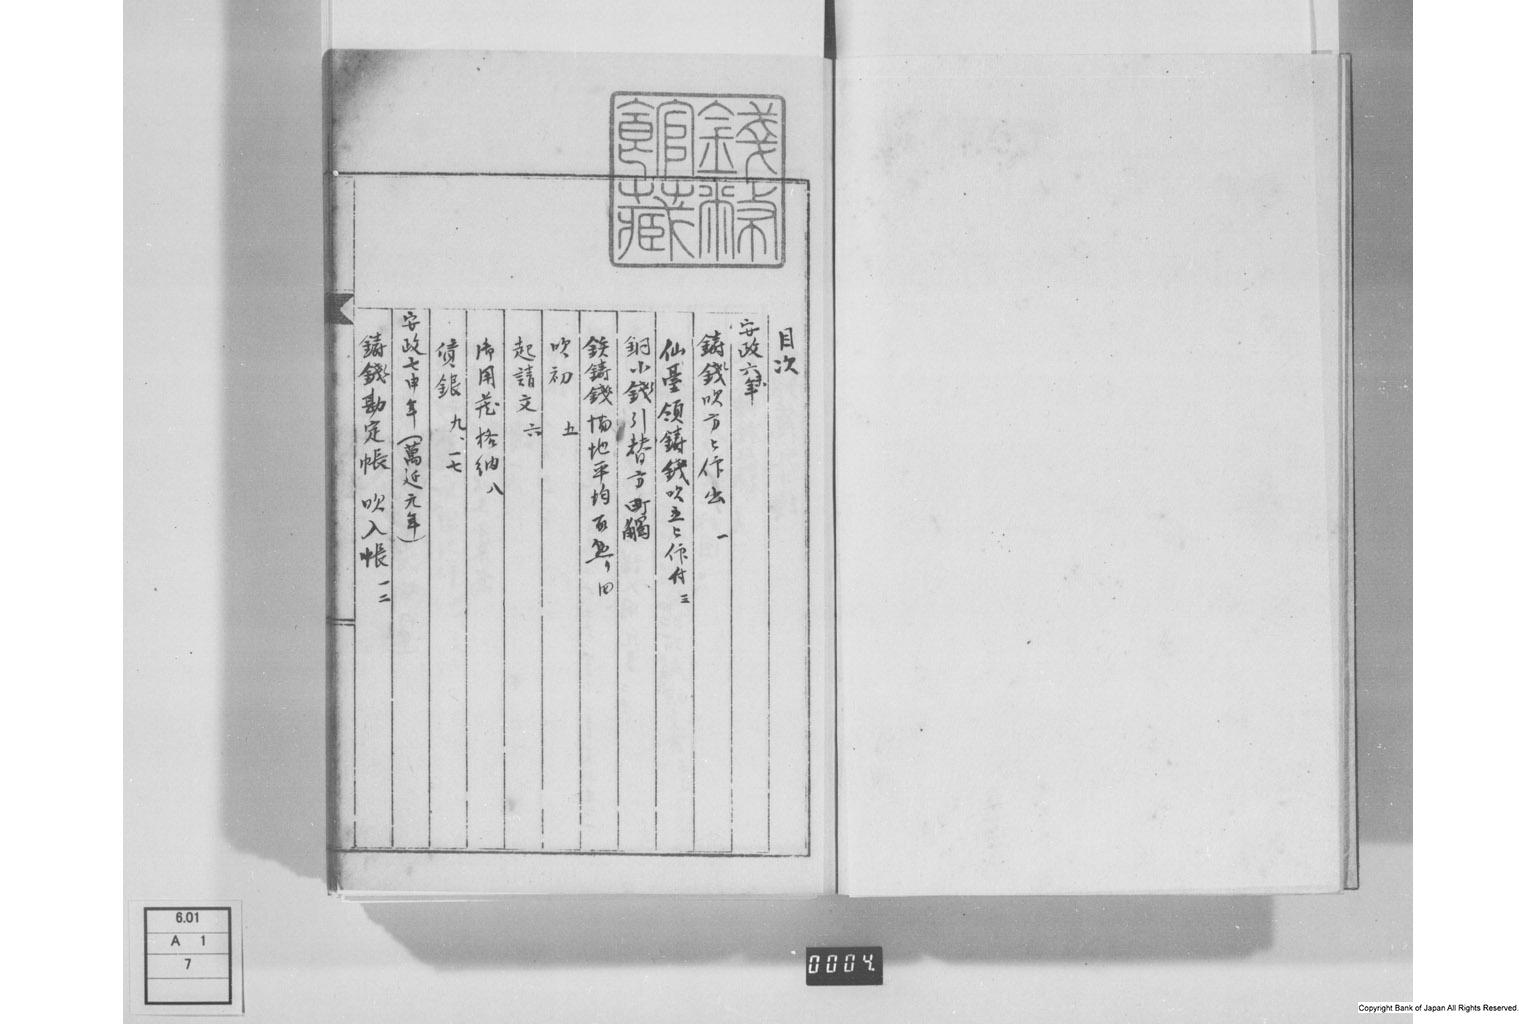 錢幣館藏
目次
安政六未年
鑄錢吹方被仰出 一
仙臺領鑄錢吹立被仰付 三
銅小錢引替方町觸
鉄鑄錢 地平均 四
吹初 五
起請文 六
御用蔵格納 八
債銀 九、一七
安政七申年(萬延元年)
鑄錢勘定帳 吹入帳 一二
6.01
A 1
7
0004.
Copyright Bank of Japan All Rights Reserved.